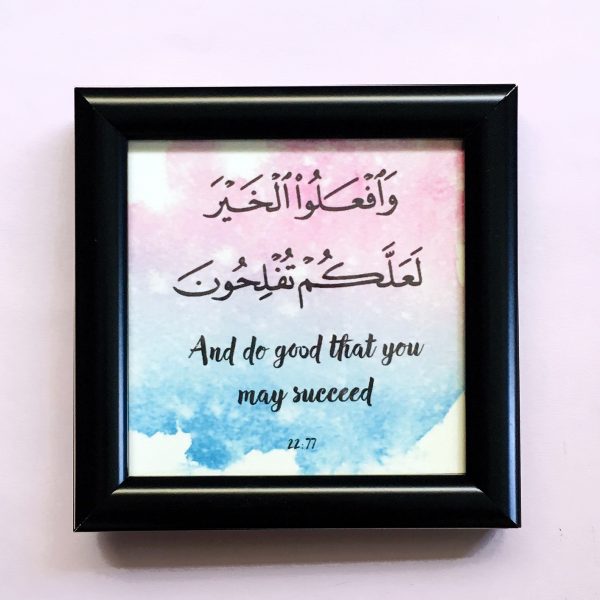 وَٱفْعَلُوا۟ ٱلْخَيْرَ
لَعَلَّكُمْ تُفْلِحُونَ
And do good that you
may succeed
22:77